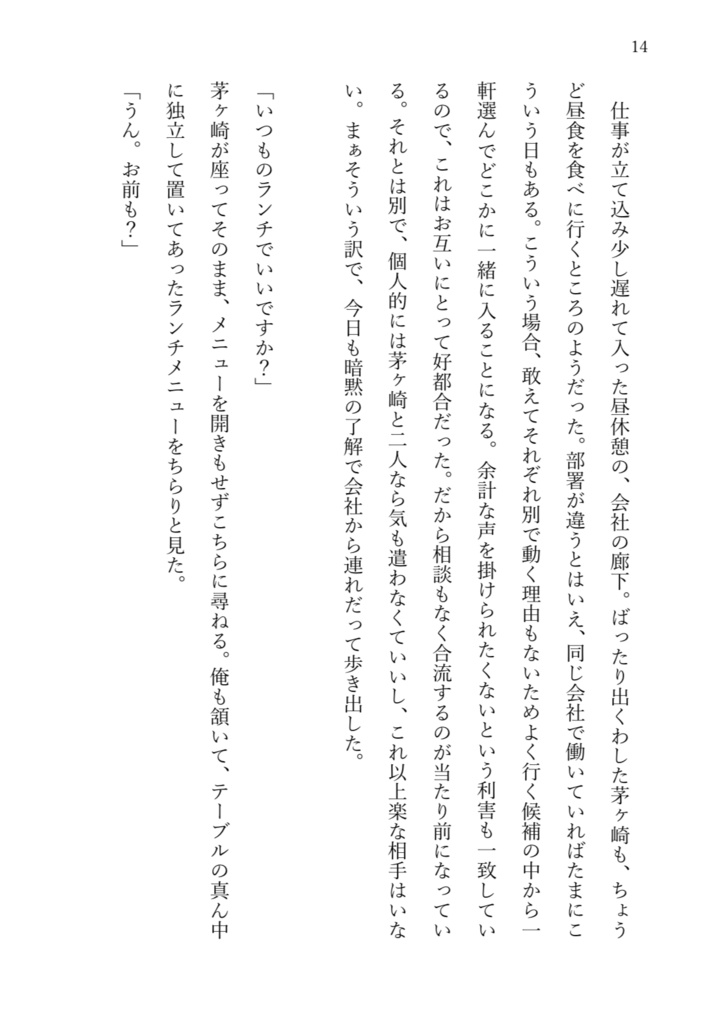 14
仕事が立て込み少し遅れて入った昼休憩の、会社の廊下。ばったり出くわした茅ヶ崎も、ちょう
ど昼食を食べに行くところのようだった。部署が違うとはいえ、同じ会社で働いていればたまにこ
ういう日もある。こういう場合、敢えてそれぞれ別で動く理由もないためよく行く候補の中から一
軒選んでどこかに一緒に入ることになる。余計な声を掛けられたくないという利害も一致してい
るので、これはお互いにとって好都合だった。だから相談もなく合流するのが当たり前になってい
る。それとは別で、個人的には茅ヶ崎と二人なら気も遣わなくていいし、これ以上楽な相手はいな
い。まぁそういう訳で、今日も暗黙の了解で会社から連れだって歩き出した。
「いつものランチでいいですか？」
茅ヶ崎が座ってそのまま、メニューを開きもせずこちらに尋ねる。俺も頷いて、テーブルの真ん中
に独立して置いてあったランチメニューをちらりと見た。
「うん。お前も？」